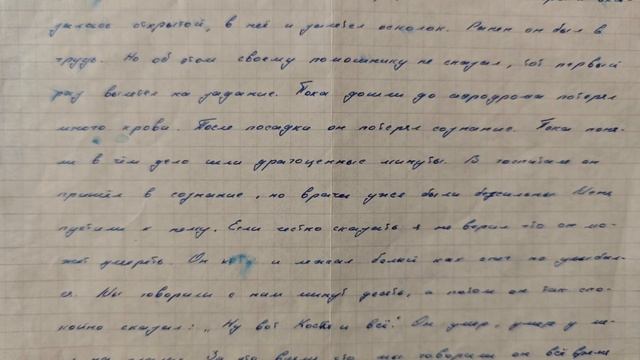 залась открытой, в неё и залетел осколок. Ранен он был в
грудь. Но об этом своему помошнику не сказал, тот первый
раз вылетел на задание. Пока дошли до аэродрома потерял
много крови. После посадки он потерял сознание. Пока поня-
ли в чём дело шли драгоценные минуты. В госпитале он
пришёл в сознание, но врачи уже были бессильны. Меня
пустили к нему. Если честно сказать я не верил что он мо-
жет умереть. Он и лежал белый как снег но улыбал-
ся. Мы говорили с ним минут десять, а потом он так спо-
койно сказал: „Ну вот Костя и всё." Он умер, умер у ме-
ня на За это время что мы говорили он всё время